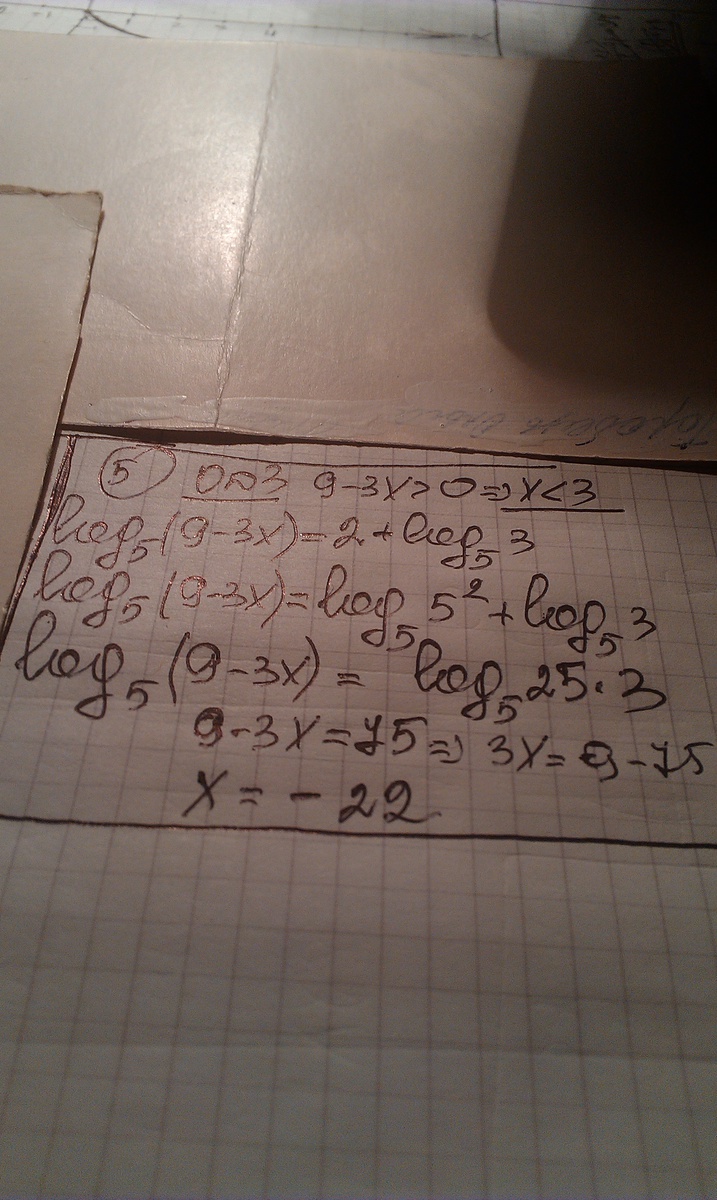 5 ООЗ 9-3x>0=>x<3
log₅(9-3x)=2+log₅3
log₅(9-3x)=log₅5²+log₅3
log₅(9-3x)= log₅25·3
9-3x=75=> 3x=9-75
x=-22